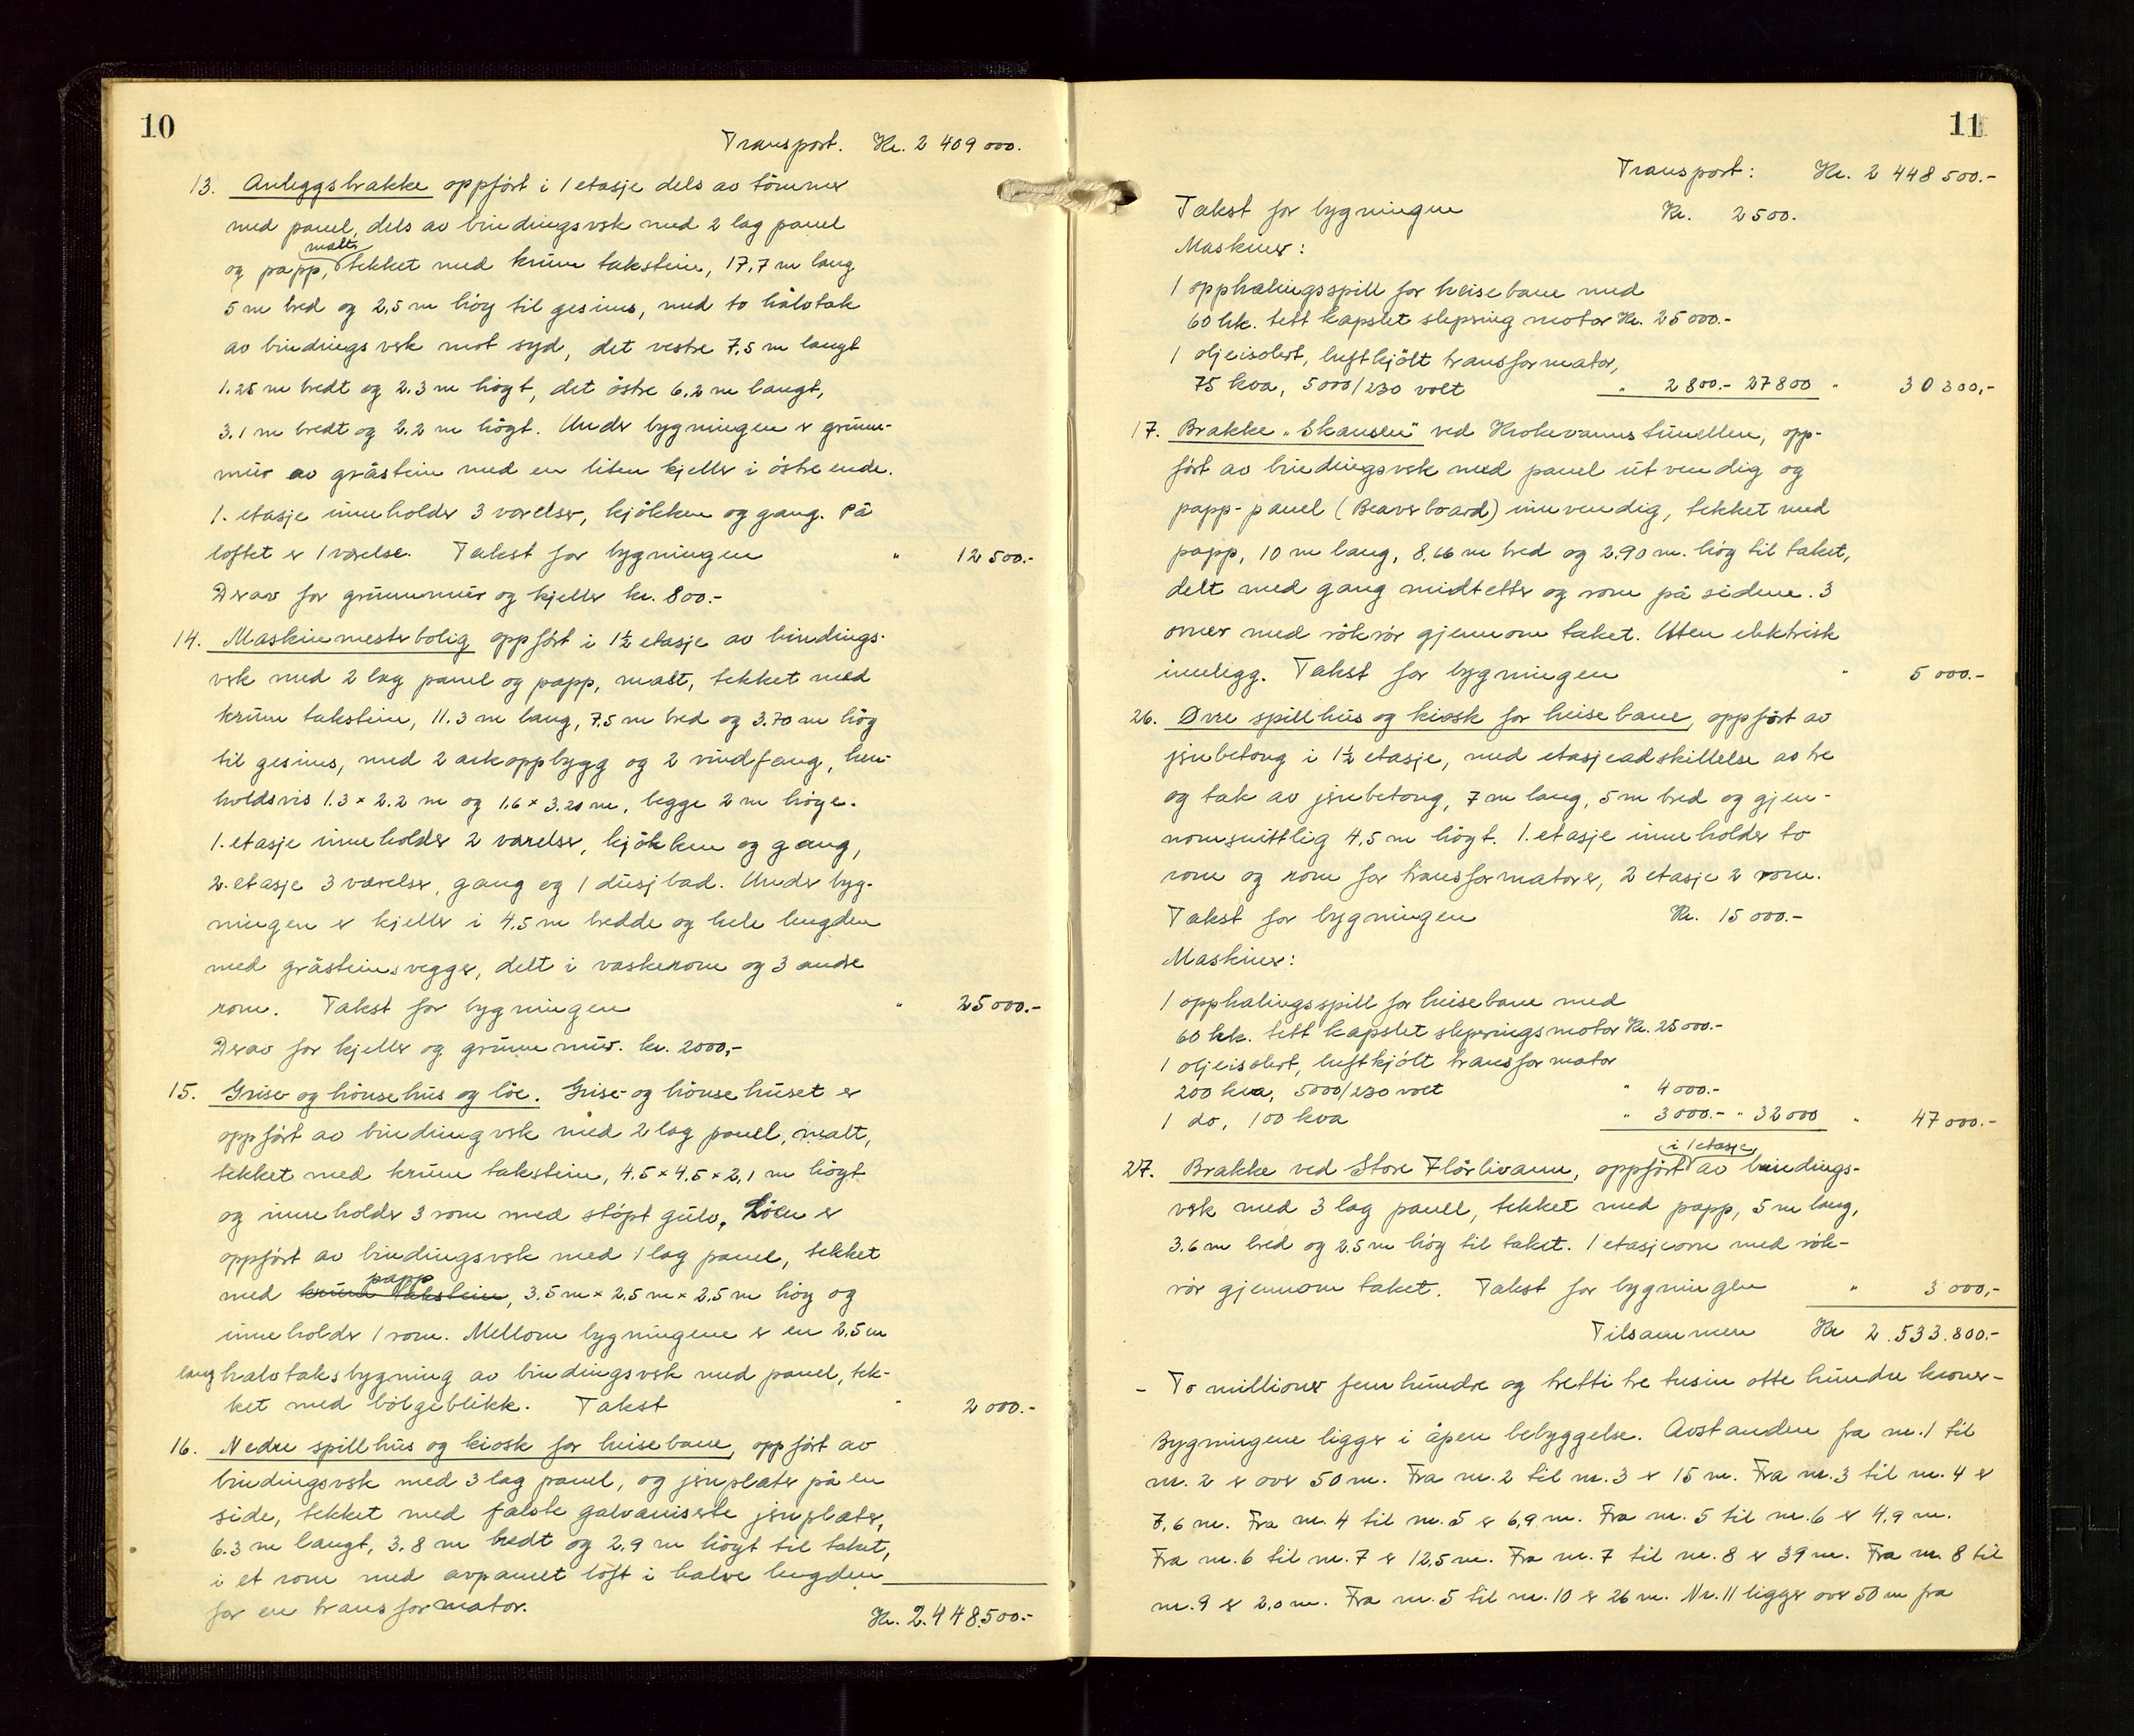 10
Transport. Kr. 2 409 000.
13. Anleggsbrakke oppfört i 1 etasje dels av tömmer
med panel, dels av bindingsverk med 2 lag panel
malt,
og papp, tekket med krum takstein, 17,7 m lang
5 m bred og 2,5 m höy til gesims, med to halvtak
av bindingsverk mot syd, det vestre 7,5 m langt
1.25 m bredt og 2.3 m högt, det östre 6.2 m langt,
3.1 m bredt og 2.2 m högt. Under bygningen er grunn-
mur av gråstein med en liten kjeller i östre ende.
1. etasje inneholder 3 værelser, kjökken og gang. På
loftet er 1 værelse. Takst for bygningen " 12 500.-
Derav for grunnmur og kjeller kr. 800.-
14. Maskinmesterbolig oppfört i 1½ etasje av bindings-
verk med 2 lag panel og papp, malt, tekket med
krum takstein, 11.3 m lang, 7.5 m bred og 3.70 m hög
til gesims, med 2 arkoppbygg og 2 vindfang, hen-
holdsvis 1.3 × 2.2 m og 1.6 × 3.20 m, begge 2 m höye.
1. etasje inneholder 2 værelser, kjökken og gang,
2. etasje 3 værelser, gang og 1 dusjbad. Under byg-
ningen er kjeller i 4.5 m bredde og hele lengden
med gråsteinsvegger, delt i vaskerom og 3 andre
rom. Takst for bygningen " 25 000.-
Derav for kjeller og grunnmur. kr. 2000,-
15. Grise- og hönsehus og löe. Grise- og hönsehuset er
oppfört av bindingverk med 2 lag panel, malt,
tekket med krum takstein, 4.5 × 4.5 × 2,1 m högt
og inneholder 3 rom med stöpt gulv. Löen er
oppfört av bindingsverk med 1 lag panel, tekket
papp
med krum takstein, 3.5 m × 2.5 m × 2.5 m höy og
inneholder 1 rom. Mellom bygningene er en 2.5 m
lang halvtaksbygning av bindingsverk med panel, tek-
ket med bölgeblikk. Takst " 2 000.-
16. Nedre spillhus og kiosk for heisebane, oppfört av
bindingsverk med 3 lag panel, og jernplater på en
side, tekket med falste galvaniserte jernplater,
6.3 m langt, 3.8 m bredt og 2.9 m högt til taket,
i et rom med avpanlet loft i halve lengden
for en transformator.
Kr. 2.448.500.-
11
Transport: Kr. 2 448 500.-
Takst for bygningen Kr. 2 500.
Maskiner:
1 opphalingsspill for heisebane med
60 hk. tett kapslet slepring motor Kr. 25 000.-
1 oljeisolert, luftkjölt transformator,
75 kva, 5000/230 volt " 2 800.- 27 800 " 30 300,-
17. Brakke „Skansen" ved Krokevannstunellen, opp-
fört av bindingsverk med panel utvendig og
papp-panel (Beaverboard) innvendig, tekket med
papp, 10 m lang, 8,66 m bred og 2.90 m. hög til taket,
delt med gang midtetter og rom på sidene. 3
ovner med rökrör gjennom taket. Uten elektrisk
innlegg. Takst for bygningen " 5 000.-
26. Övre spillhus og kiosk for heisebane, oppfört av
jernbetong i 1½ etasje, med etasjeadskillelse av tre
og tak av jernbetong, 7 m lang, 5 m bred og gjen-
nomsnittlig 4,5 m högt. 1. etasje inneholder to
rom og rom for transformatorer, 2 etasje 2 rom.
Takst for bygningen Kr. 15 000.-
Maskiner:
1 opphalingsspill for heisebane med
60 hk. tett kapslet slepringsmotor Kr. 25 000.-
1 oljeisolert, luftkjölt transformator
200 kva, 5000/230 volt " 4 000.-
1 do, 100 kva " 3 000.- " 32 000 " 47 000.-
i 1 etasje
27. Brakke ved Store Flörlivann, oppfört av bindings-
verk med 3 lag panel, tekket med papp, 5 m lang,
3.6 m bred og 2.5 m höy til taket. 1 etasjeovn med rök-
rör gjennom taket. Takst for bygningen " 3 000,-
Tilsammen Kr 2.533.800.-
- To millioner femhundre og trettitre tusin otte hundre kroner-
Bygningene ligger i åpen bebyggelse. Avstanden fra nr. 1 til
nr. 2 er over 50 m. Fra nr. 2 til nr. 3 er 15 m. Fra nr. 3 til nr. 4 er
7,6 m. Fra nr. 4 til nr. 5 er 6,9 m. Fra nr. 5 til nr. 6 er 4,9 m.
Fra nr. 6 til nr. 7 er 12,5 m. Fra nr. 7 til nr. 8 er 39 m. Fra nr. 8 til
nr. 9 er 2,0 m. Fra nr. 5 til nr. 10 er 26 m. Nr. 11 ligger over 50 m fra